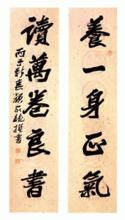 養一身正氣
讀萬卷良書
丙子新春